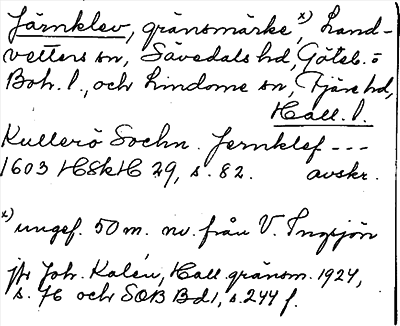 Järnklev, gränsmärke, x) Land-
vetters sn, Sävedals hd, Göteb. o
Boh. l., och Lindome sn, Fjäre hd,
Hall. l.
Kullerö Sochn. Jernklef ---
1603 HSkH 29, s. 82. avskr.
x) ungef. 50 m. nv. från V. Ingsjön
jfr Joh. Kalén, Hall. gränsm. 1924,
s. 76 och SOB Bd 1, s. 244 f.